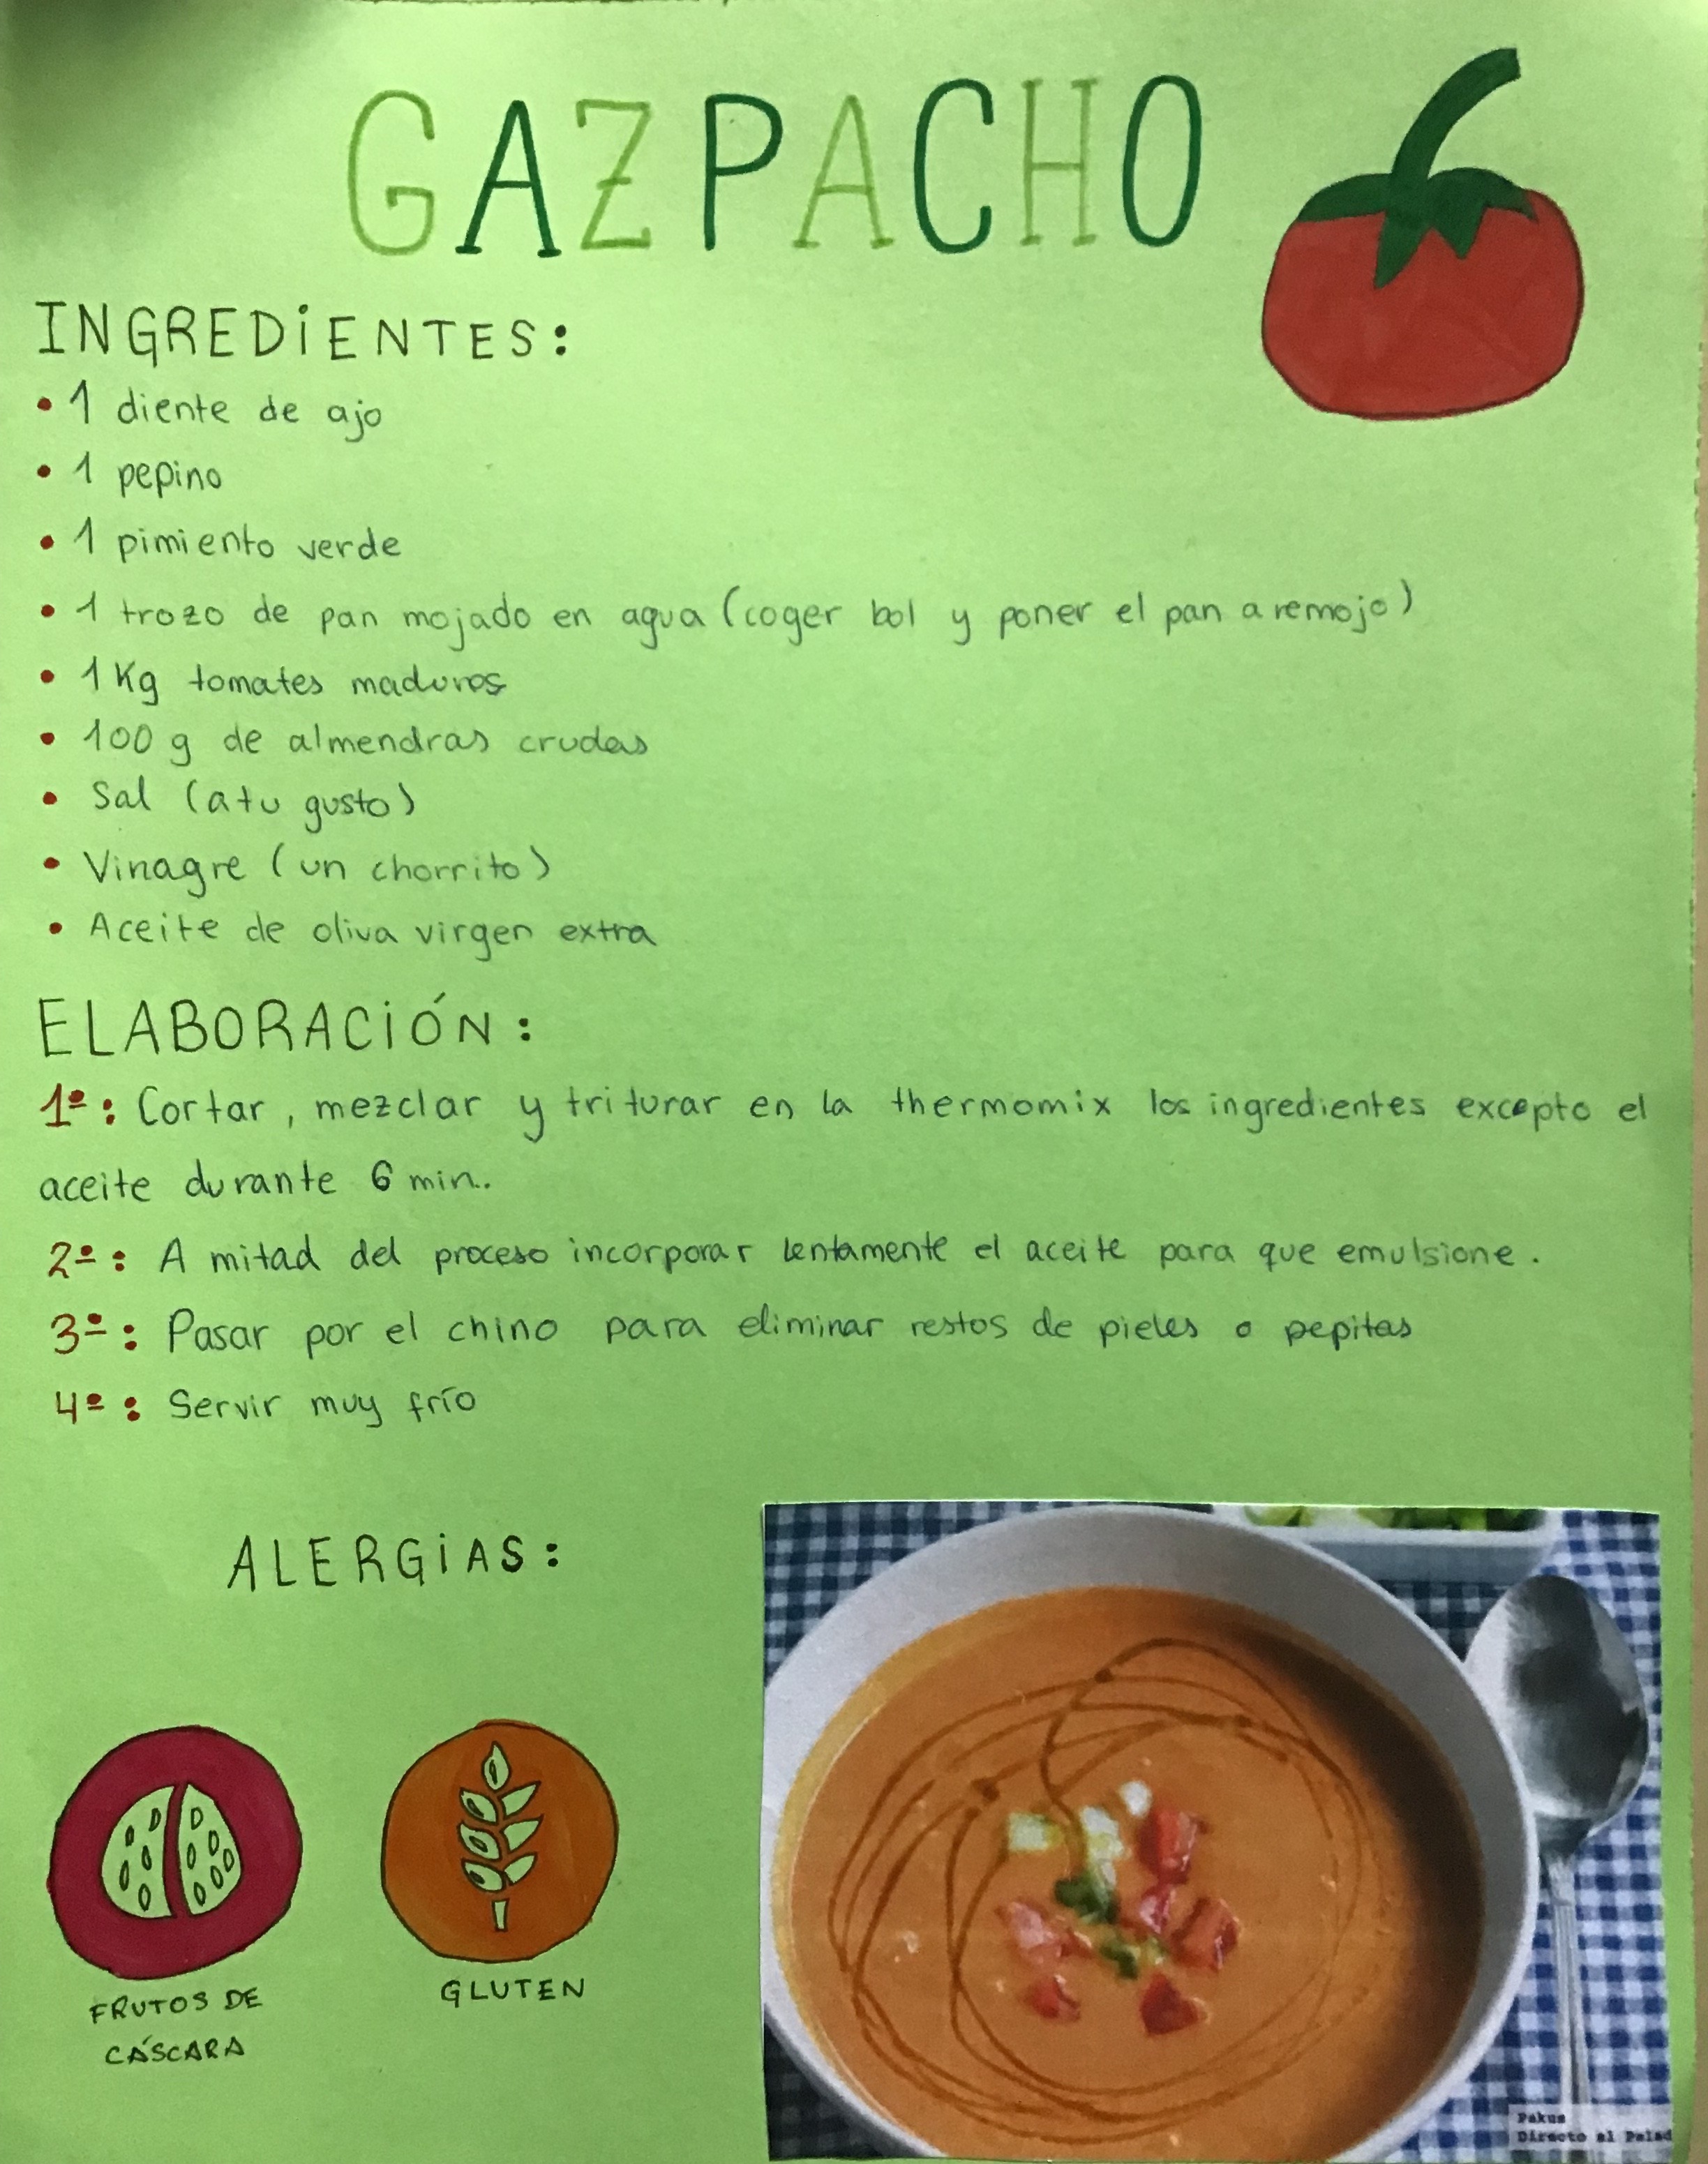 GAZPACHO
INGREDiENTES:
• 1 diente de ajo
• 1 pepino
• 1 pimiento verde
• 1 trozo de pan mojado en agua (coger bol y poner el pan a remojo)
• 1 Kg tomates maduros
• 100 g de almendras crudas
• Sal (a tu gusto)
• Vinagre (un chorrito)
• Aceite de oliva virgen extra
ELABORACiÓN:
1º: Cortar, mezclar y triturar en la thermomix los ingredientes excepto el
aceite durante 6 min.
2º: A mitad del proceso incorporar lentamente el aceite para que emulsione.
3º: Pasar por el chino para eliminar restos de pieles o pepitas
4º: Servir muy frío
ALERGiAS:
FRUTOS DE
CÁSCARA
GLUTEN
Pakus
Directo al Palad